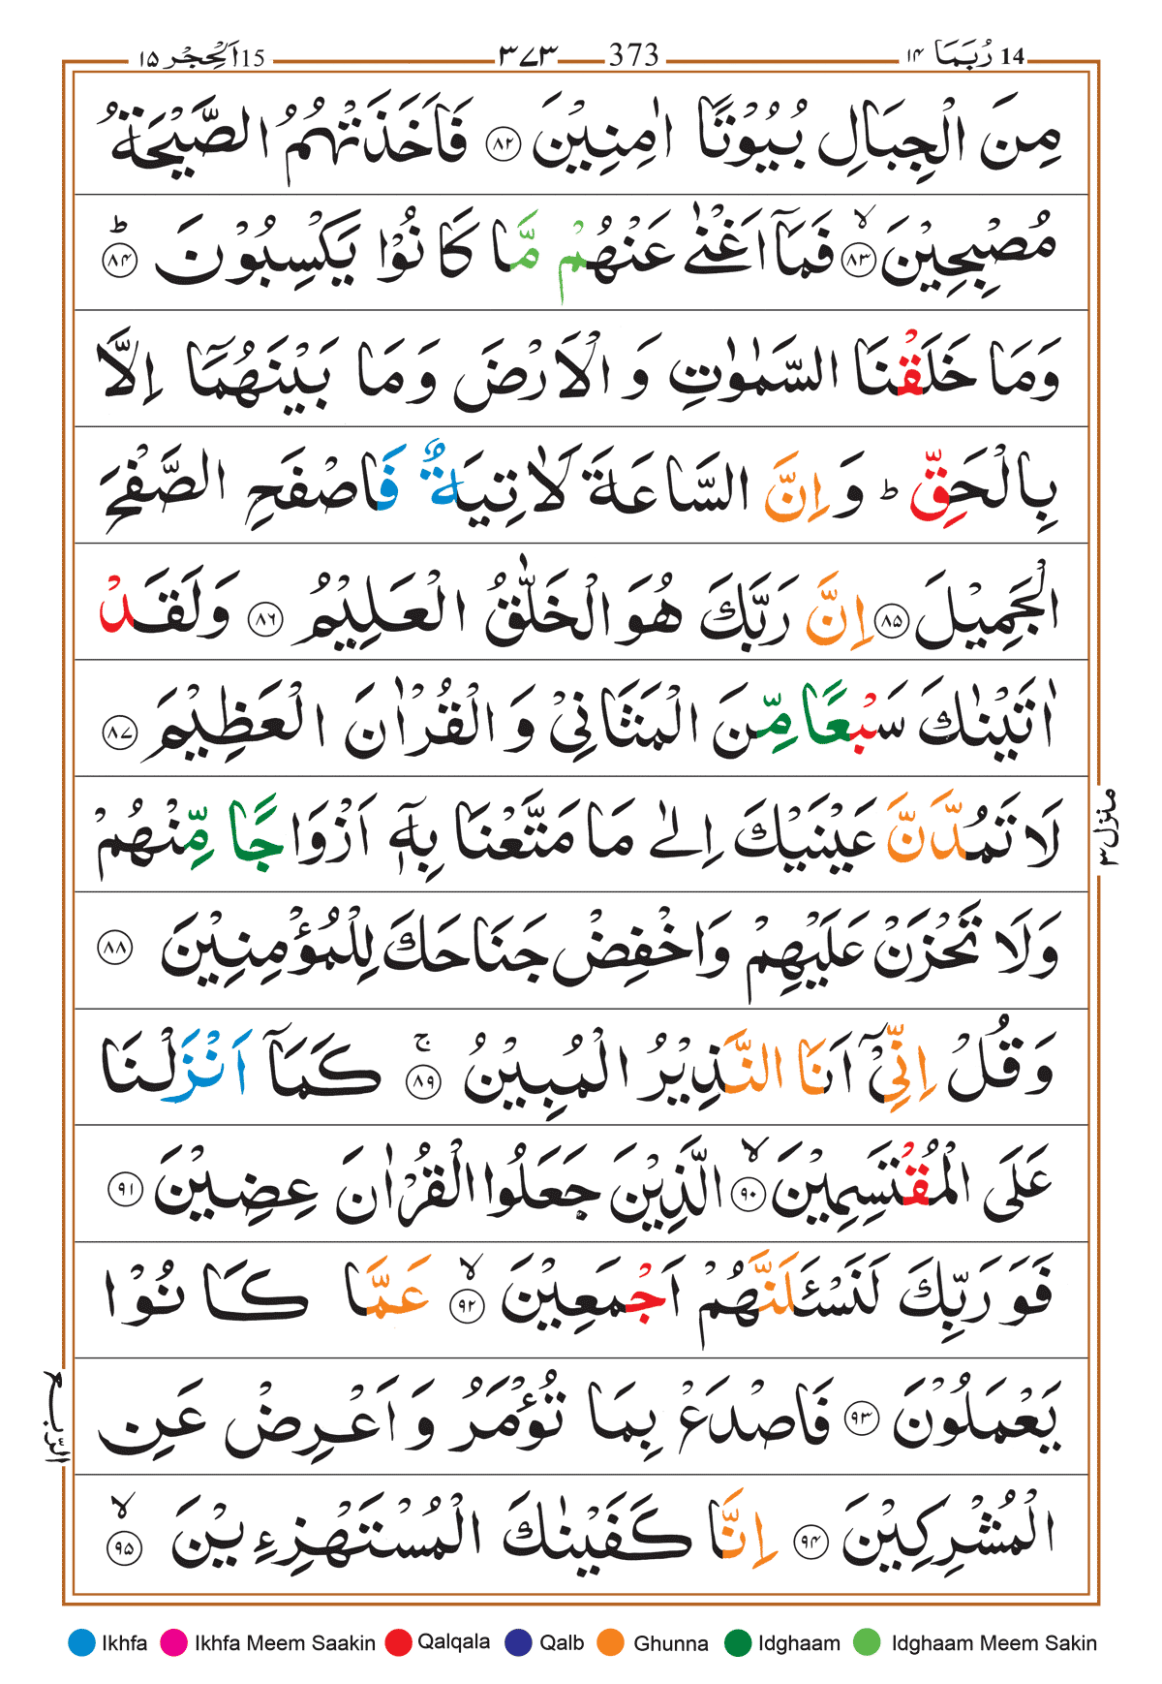 15 اَلْحِجْر ١٥ ٣٧٣ 373 14 رُبَمَا ١٤
مِنَ الْجِبَالِ بُيُوْتًا اٰمِنِيْنَ ٨٢ فَاَخَذَتْهُمُ الصَّيْحَةُ
مُصْبِحِيْنَ ۙ ٨٣ فَمَاۤ اَغْنٰى عَنْهُمْ مَّا كَانُوْا يَكْسِبُوْنَ ؕ ٨٤
وَمَا خَلَقْنَا السَّمٰوٰتِ وَ الْاَرْضَ وَمَا بَيْنَهُمَاۤ اِلَّا
بِالْحَقِّ ؕ وَ اِنَّ السَّاعَةَ لَاٰتِيَةٌ فَاصْفَحِ الصَّفْحَ
الْجَمِيْلَ ٨٥ اِنَّ رَبَّكَ هُوَ الْخَلّٰقُ الْعَلِيْمُ ٨٦ وَلَقَدْ
اٰتَيْنٰكَ سَبْعًا مِّنَ الْمَثَانِيْ وَ الْقُرْاٰنَ الْعَظِيْمَ ٨٧
لَا تَمُدَّنَّ عَيْنَيْكَ اِلٰى مَا مَتَّعْنَا بِهٖۤ اَزْوَاجًا مِّنْهُمْ
وَلَا تَحْزَنْ عَلَيْهِمْ وَاخْفِضْ جَنَاحَكَ لِلْمُؤْمِنِيْنَ ٨٨
وَقُلْ اِنِّيْۤ اَنَا النَّذِيْرُ الْمُبِيْنُ ۚ ٨٩ كَمَاۤ اَنْزَلْنَا
عَلَى الْمُقْتَسِمِيْنَ ۙ ٩٠ الَّذِيْنَ جَعَلُوا الْقُرْاٰنَ عِضِيْنَ ٩١
فَوَرَبِّكَ لَنَسْئَلَنَّهُمْ اَجْمَعِيْنَ ۙ ٩٢ عَمَّا كَانُوْا
يَعْمَلُوْنَ ٩٣ فَاصْدَعْ بِمَا تُؤْمَرُ وَ اَعْرِضْ عَنِ
الْمُشْرِكِيْنَ ٩٤ اِنَّا كَفَيْنٰكَ الْمُسْتَهْزِءِيْنَ ۙ ٩٥
منزل ٣
الربع
Ikhfa Ikhfa Meem Saakin Qalqala Qalb Ghunna Idghaam Idghaam Meem Sakin